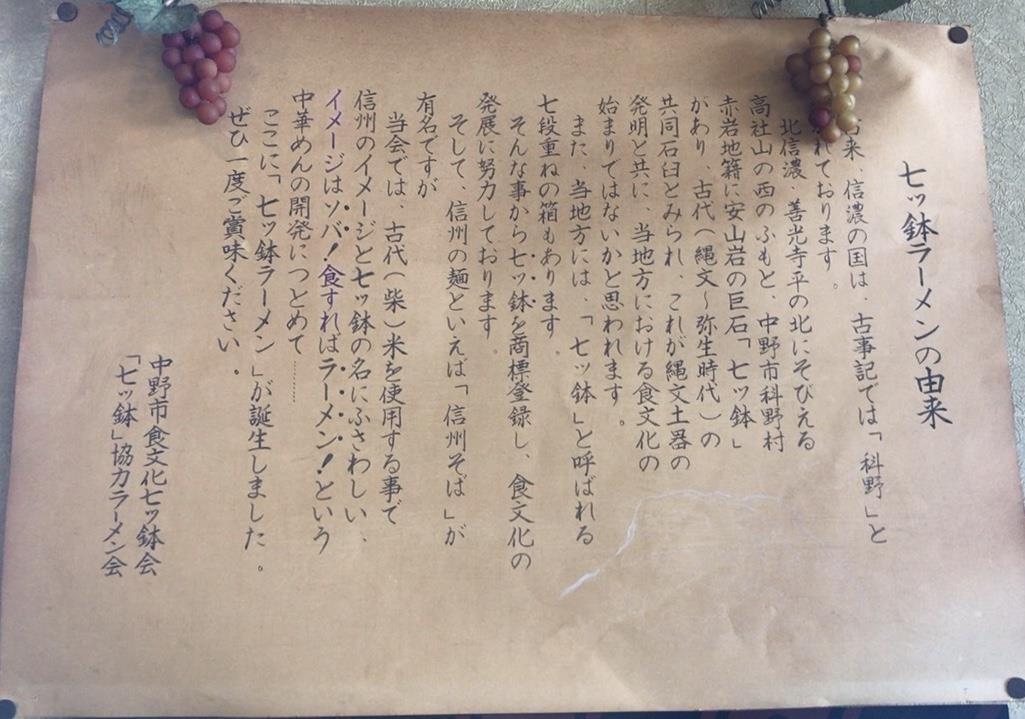 七ッ鉢ラーメンの由来
来、信濃の国は、古事記では「科野」と
れております。
北信濃・善光寺平の北にそびえる
高社山の西のふもと、中野市科野村
赤岩地籍に安山岩の巨石「七ッ鉢」
があり、古代（縄文～弥生時代）の
共同石臼とみられ、これが縄文土器の
発明と共に、当地方における食文化の
始まりではないかと思われます。
また、当地方には、「七ッ鉢」と呼ばれる
七段重ねの箱もあります。
そんな事から七ッ鉢を商標登録し、食文化の
発展に努力しております。
そして、信州の麺といえば「信州そば」が
有名ですが
当会では、古代（柴）米を使用する事で
信州のイメージと七ッ鉢の名にふさわしい、
イメージはソバ！食すればラーメン！という
中華めんの開発につとめて………
ここに「七ッ鉢ラーメン」が誕生しました。
ぜひ一度ご賞味ください。
中野市食文化七ッ鉢会
「七ッ鉢」協力ラーメン会